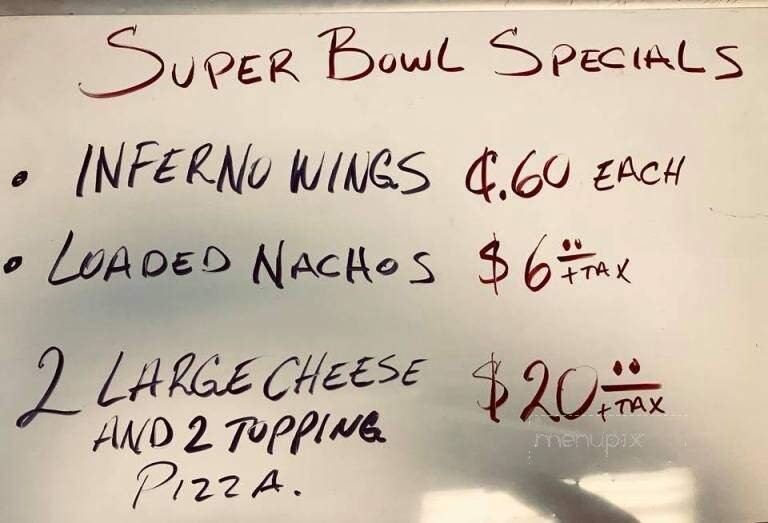 SUPER BOWL SPECIALS
• INFERNO WINGS ¢.60 EACH
• LOADED NACHOS $6.00 +TAX
2 LARGE CHEESE $20.00 +TAX
AND 2 TOPPING
PIZZA.
menupix